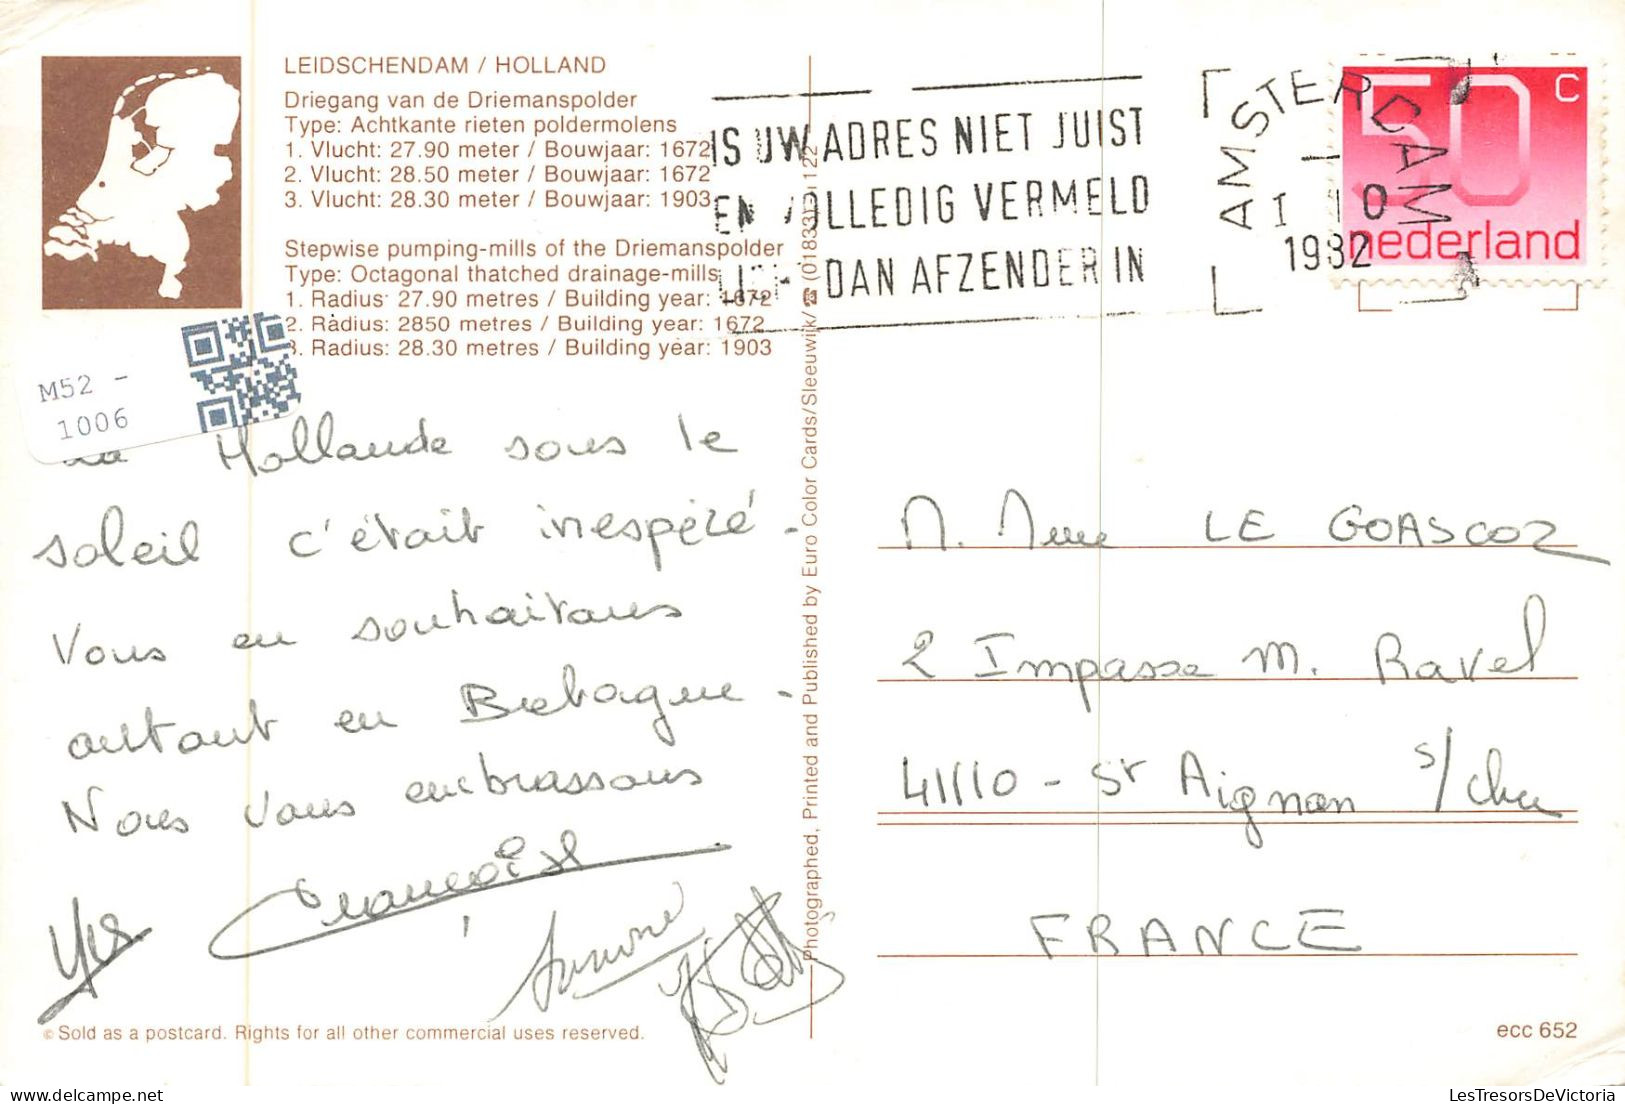 LEIDSCHENDAM / HOLLAND
Driegang van de Driemanspolder
Type: Achtkante rieten poldermolens
1. Vlucht: 27.90 meter / Bouwjaar: 1672
2. Vlucht: 28.50 meter / Bouwjaar: 1672
3. Vlucht: 28.30 meter / Bouwjaar: 1903
Stepwise pumping-mills of the Driemanspolder
Type: Octagonal thatched drainage-mills
1. Radius: 27.90 metres / Building year: 1672
2. Radius: 2850 metres / Building year: 1672
3. Radius: 28.30 metres / Building year: 1903
M52 -
1006
La Hollande sous le
soleil c'était inespéré -
Vous en souhaitons
autant en Bretagne -
Nous vous embrassons
Françoise
Yves
© Sold as a postcard. Rights for all other commercial uses reserved.
Photographed, Printed and Published by Euro Color Cards/Sleeuwijk/☎ (01833) - 122
IS UW ADRES NIET JUIST
EN VOLLEDIG VERMELD
DAN AFZENDER IN
AMSTERDAM
1982
50 c
nederland
M. Mme LE GOASCOZ
2 Impasse M. Ravel
41110 - St Aignan s/Cher
FRANCE
ecc 652
LesTresorsDeVictoria.com